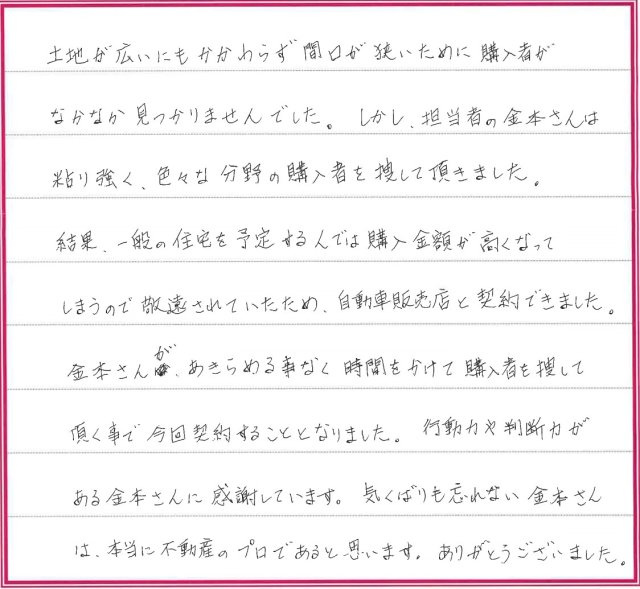 土地が広いにもかかわらず間口が狭いために購入者が
なかなか見つかりませんでした。しかし、担当者の金本さんは
粘り強く、色々な分野の購入者を捜して頂きました。
結果、一般の住宅を予定する人では購入金額が高くなって
しまうので敬遠されていたため、自動車販売店と契約できました。
金本さんが、あきらめる事なく時間をかけて購入者を捜して
頂く事で今回契約することとなりました。行動力や判断力が
ある金本さんに感謝しています。気くばりも忘れない金本さん
は、本当に不動産のプロであると思います。ありがとうございました。